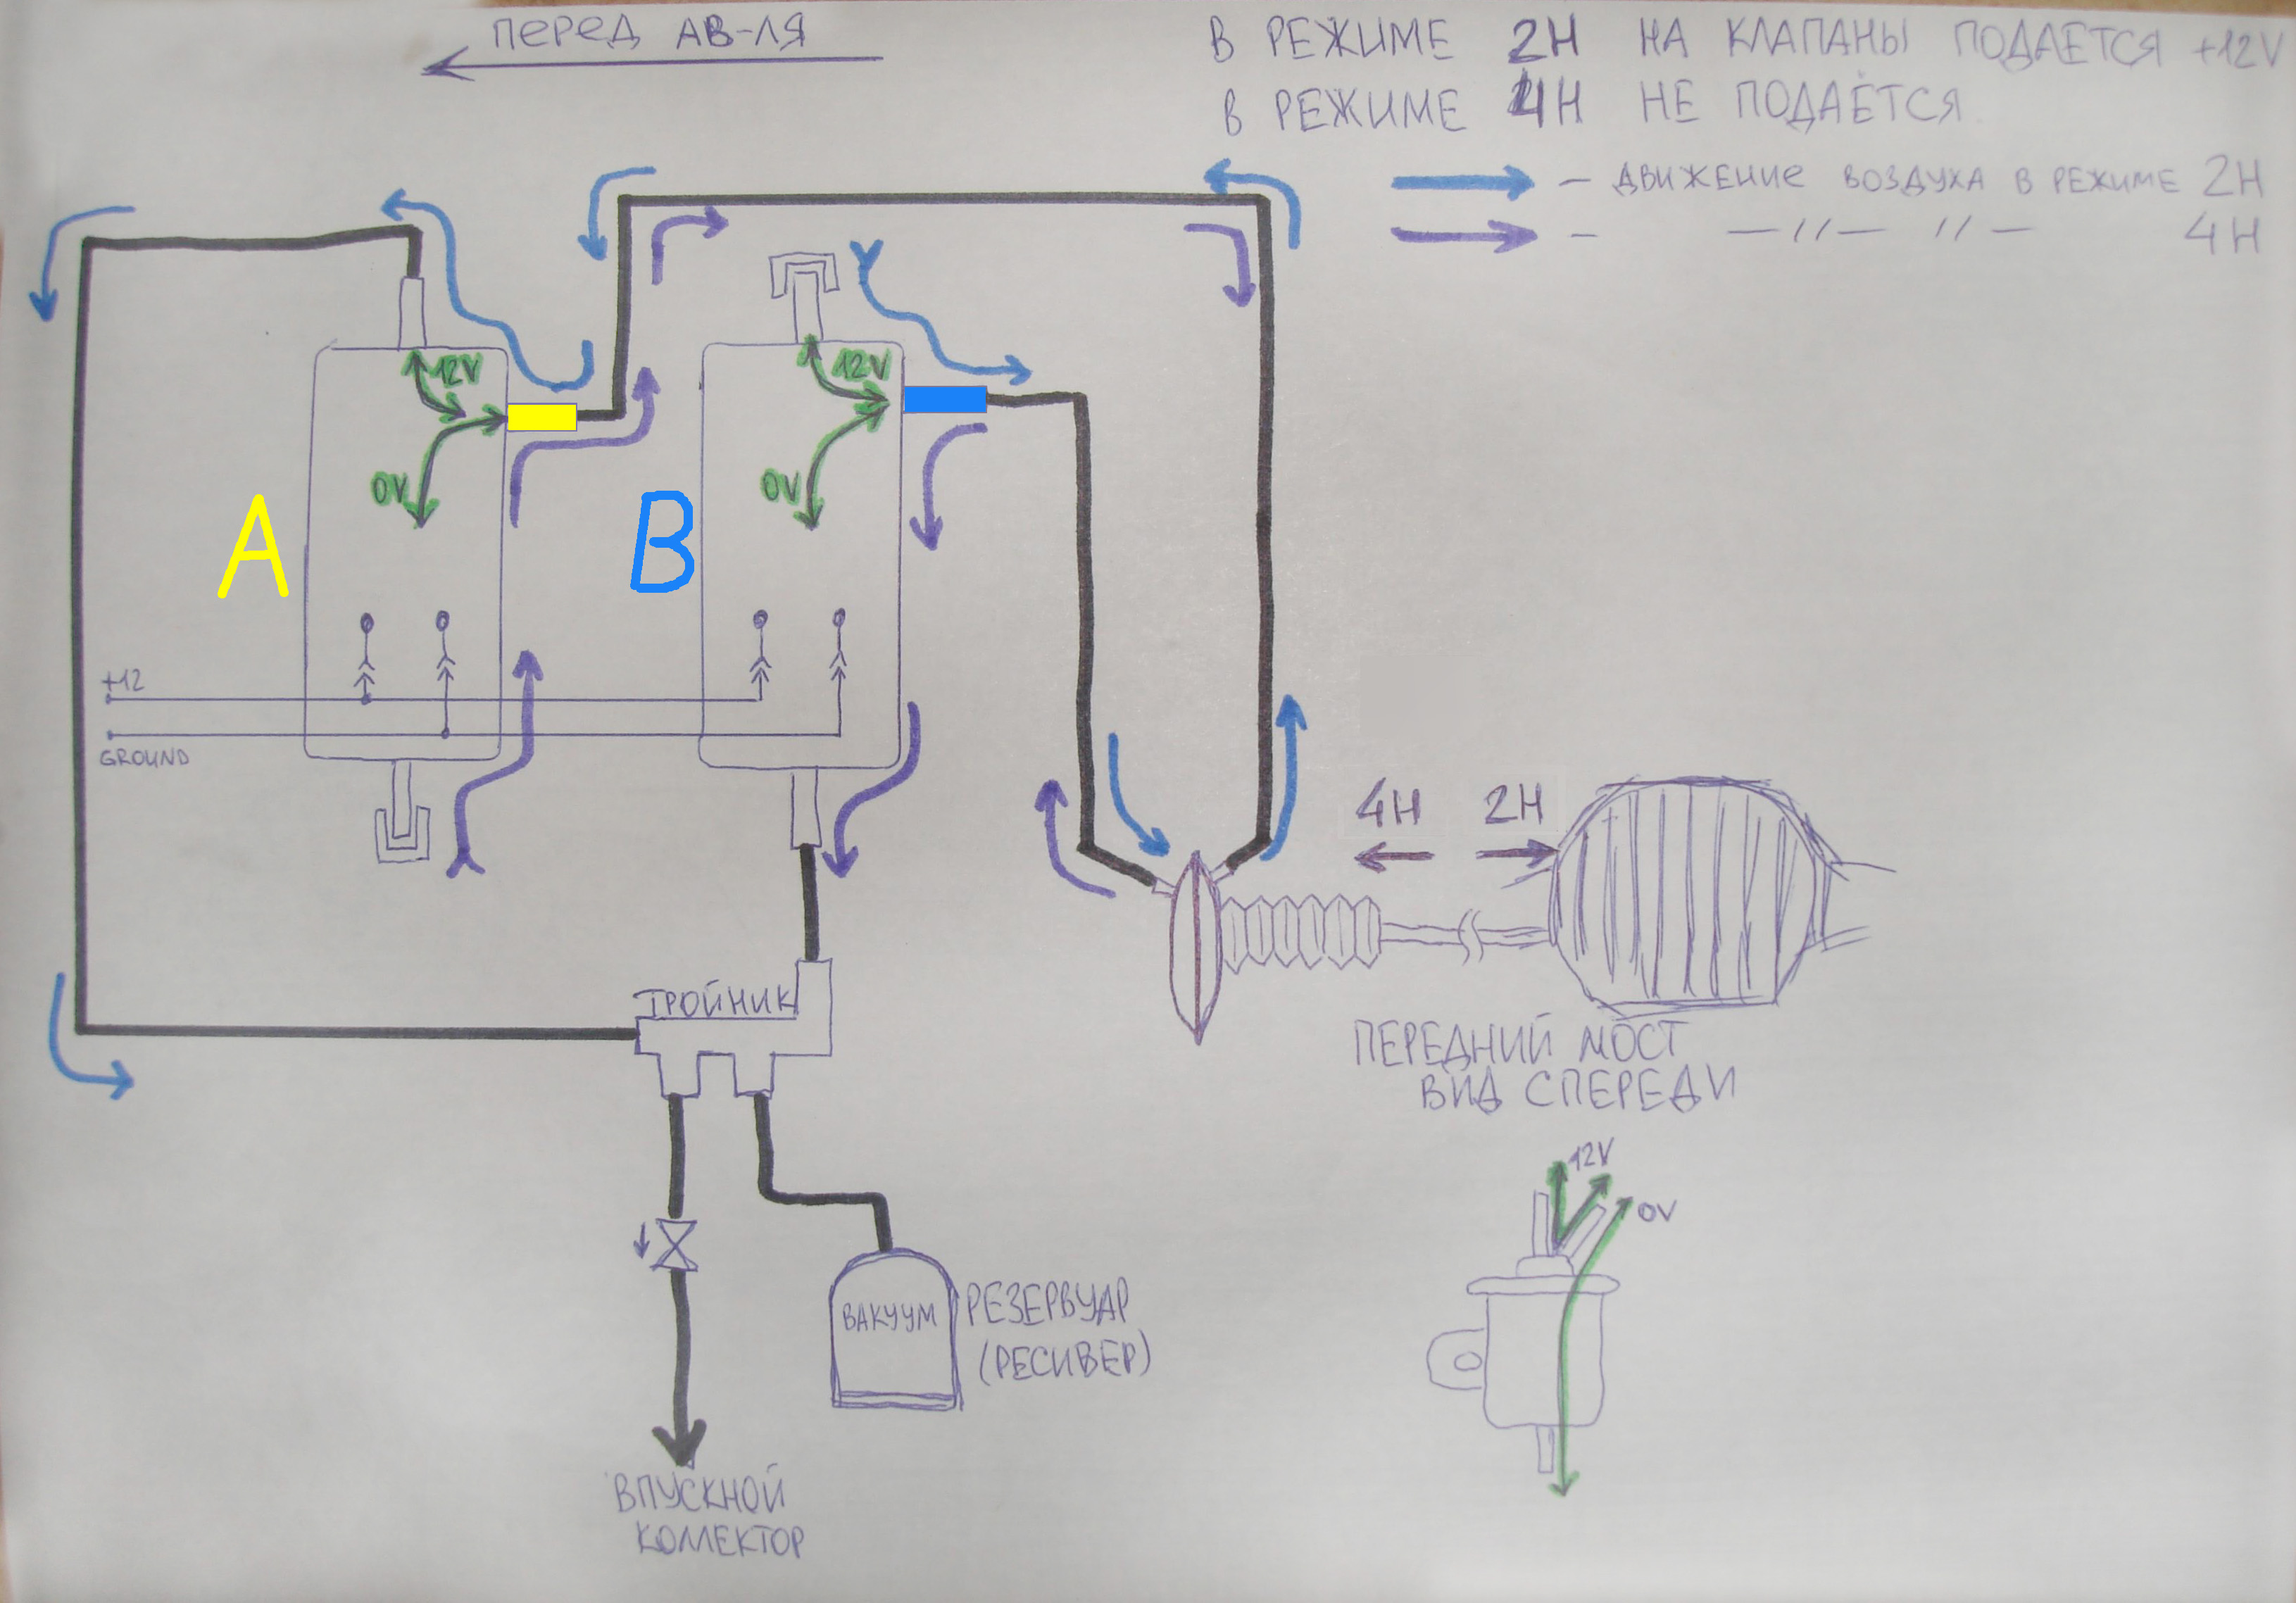 ПЕРЕД АВ-ЛЯ
В РЕЖИМЕ 2H НА КЛАПАНЫ ПОДАЕТСЯ +12V
В РЕЖИМЕ 4H НЕ ПОДАЁТСЯ
- ДВИЖЕНИЕ ВОЗДУХА В РЕЖИМЕ 2H
- —//— //— 4H
12V
12V
0V
0V
A
B
+12
GROUND
4H
2H
ТРОЙНИК
ПЕРЕДНИЙ МОСТ
ВИД СПЕРЕДИ
12V
0V
ВАКУУМ
РЕЗЕРВУАР
(РЕСИВЕР)
ВПУСКНОЙ
КОЛЛЕКТОР